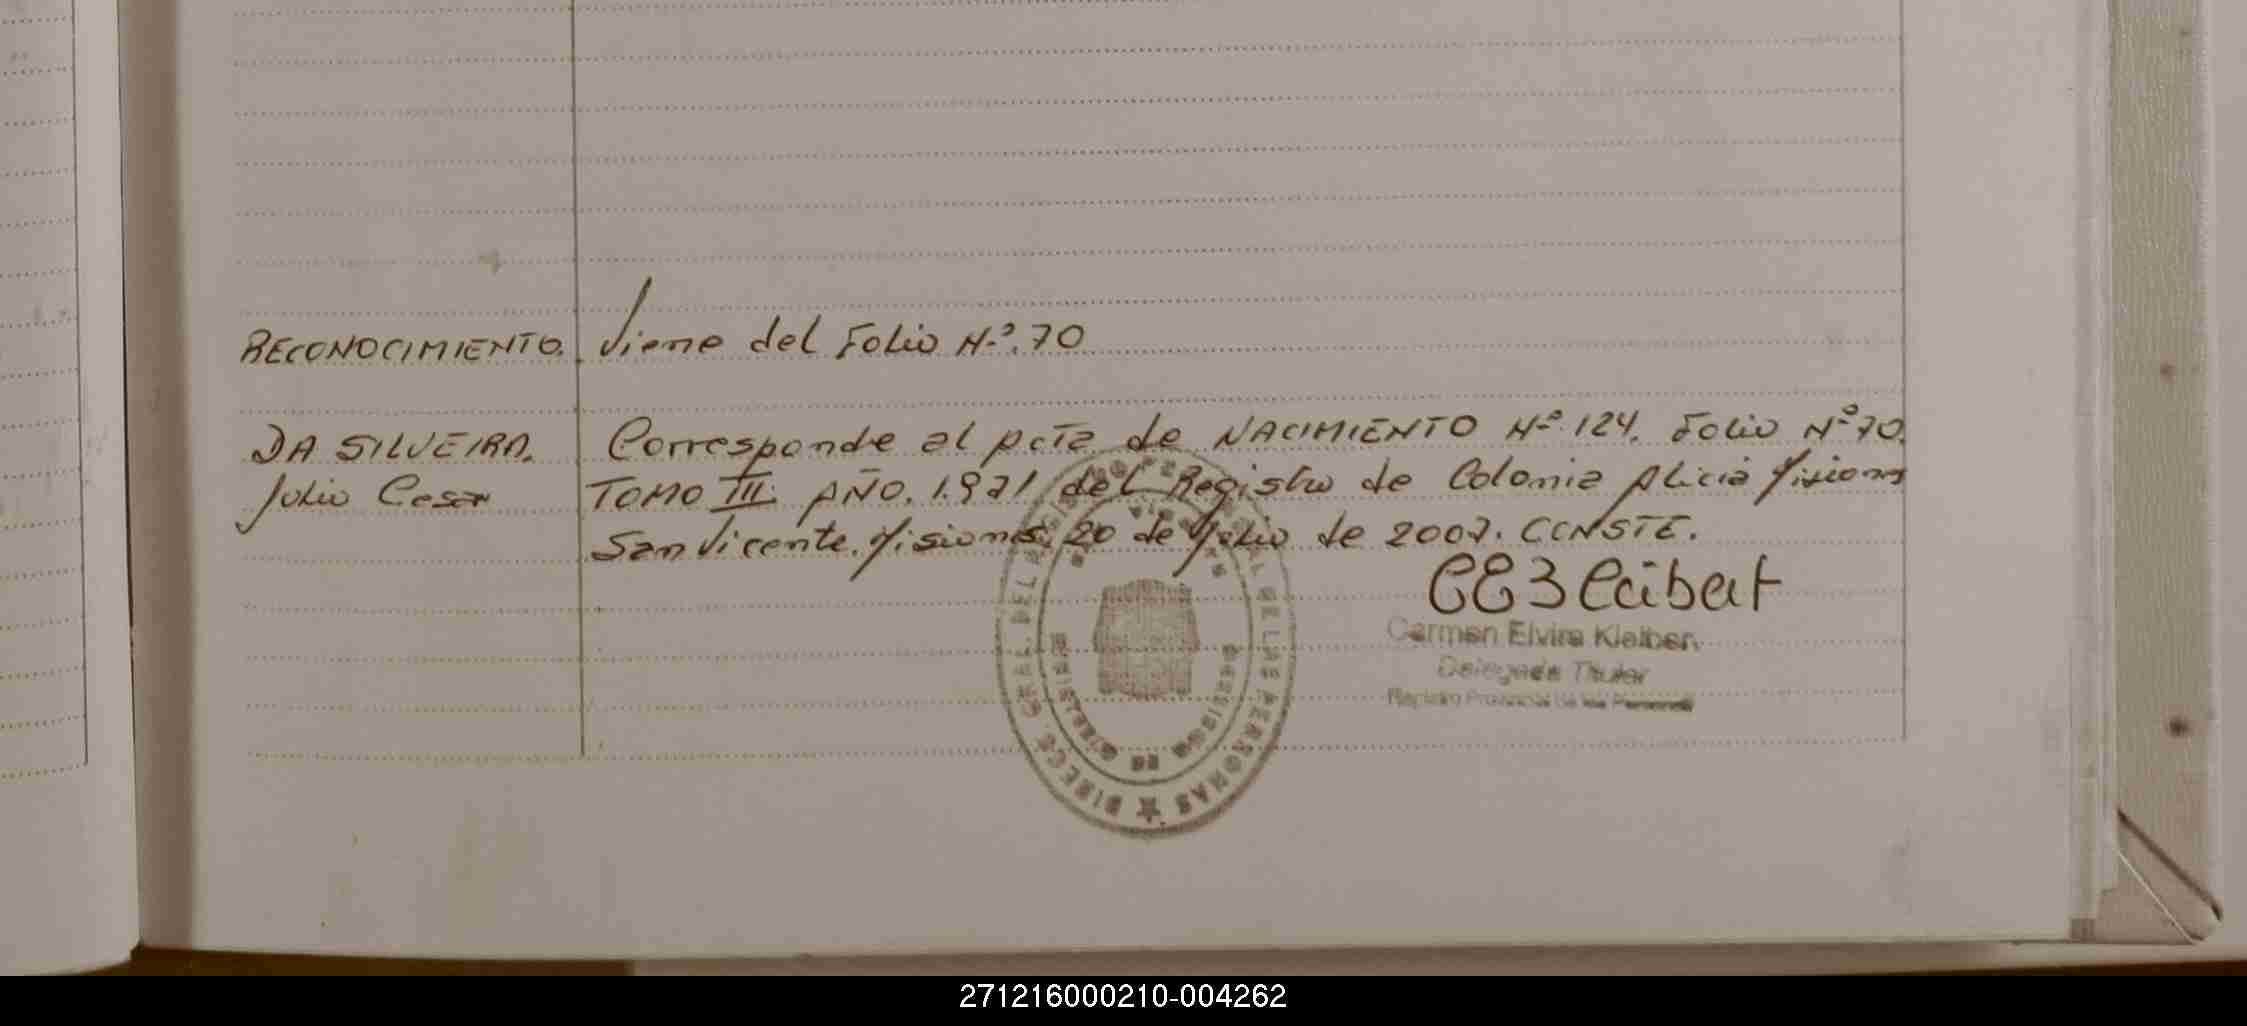 RECONOCIMIENTO. Viene del Folio Nº.70
DA SILVEIRA. Corresponde al Acta de NACIMIENTO Nº 124. Folio Nº 70.
Julio Cesar TOMO III. AÑO. 1.971 del Registro de Colonia Alicia Misiones
San Vicente. Misiones, 20 de Julio de 2007. CONSTE.
Carmen Elvira Kleiber
Delegada Titular
Registro Provincial de las Personas
DIRECC. GRAL. DEL REGISTRO DE LAS PERSONAS
271216000210-004262